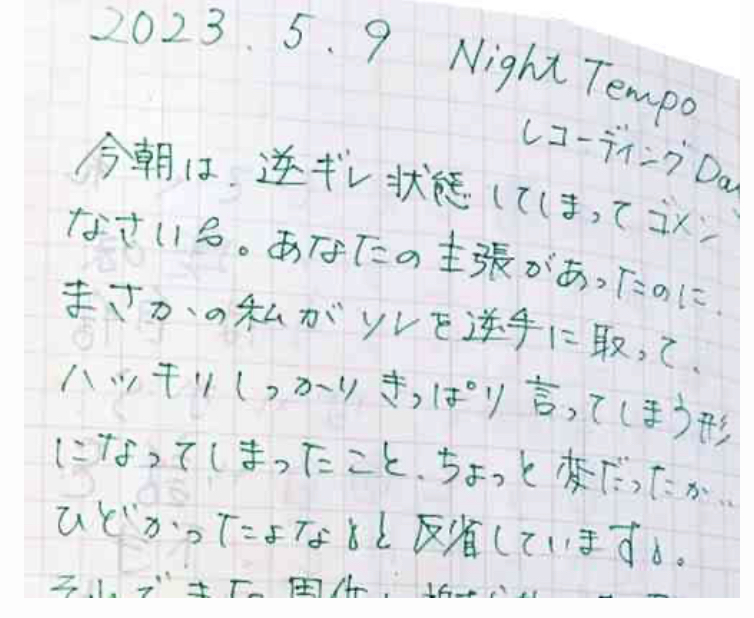 2023.5.9 Night Tempo
レコーディングDay
今朝は、逆ギレ状態してしまってゴメン
なさいね。あなたの主張があったのに、
まさかの私がソレを逆手に取って、
ハッキリしっかりきっぱり言ってしまう形
になってしまったこと、ちょっと変だったか…
ひどかったよなぁと反省しています。